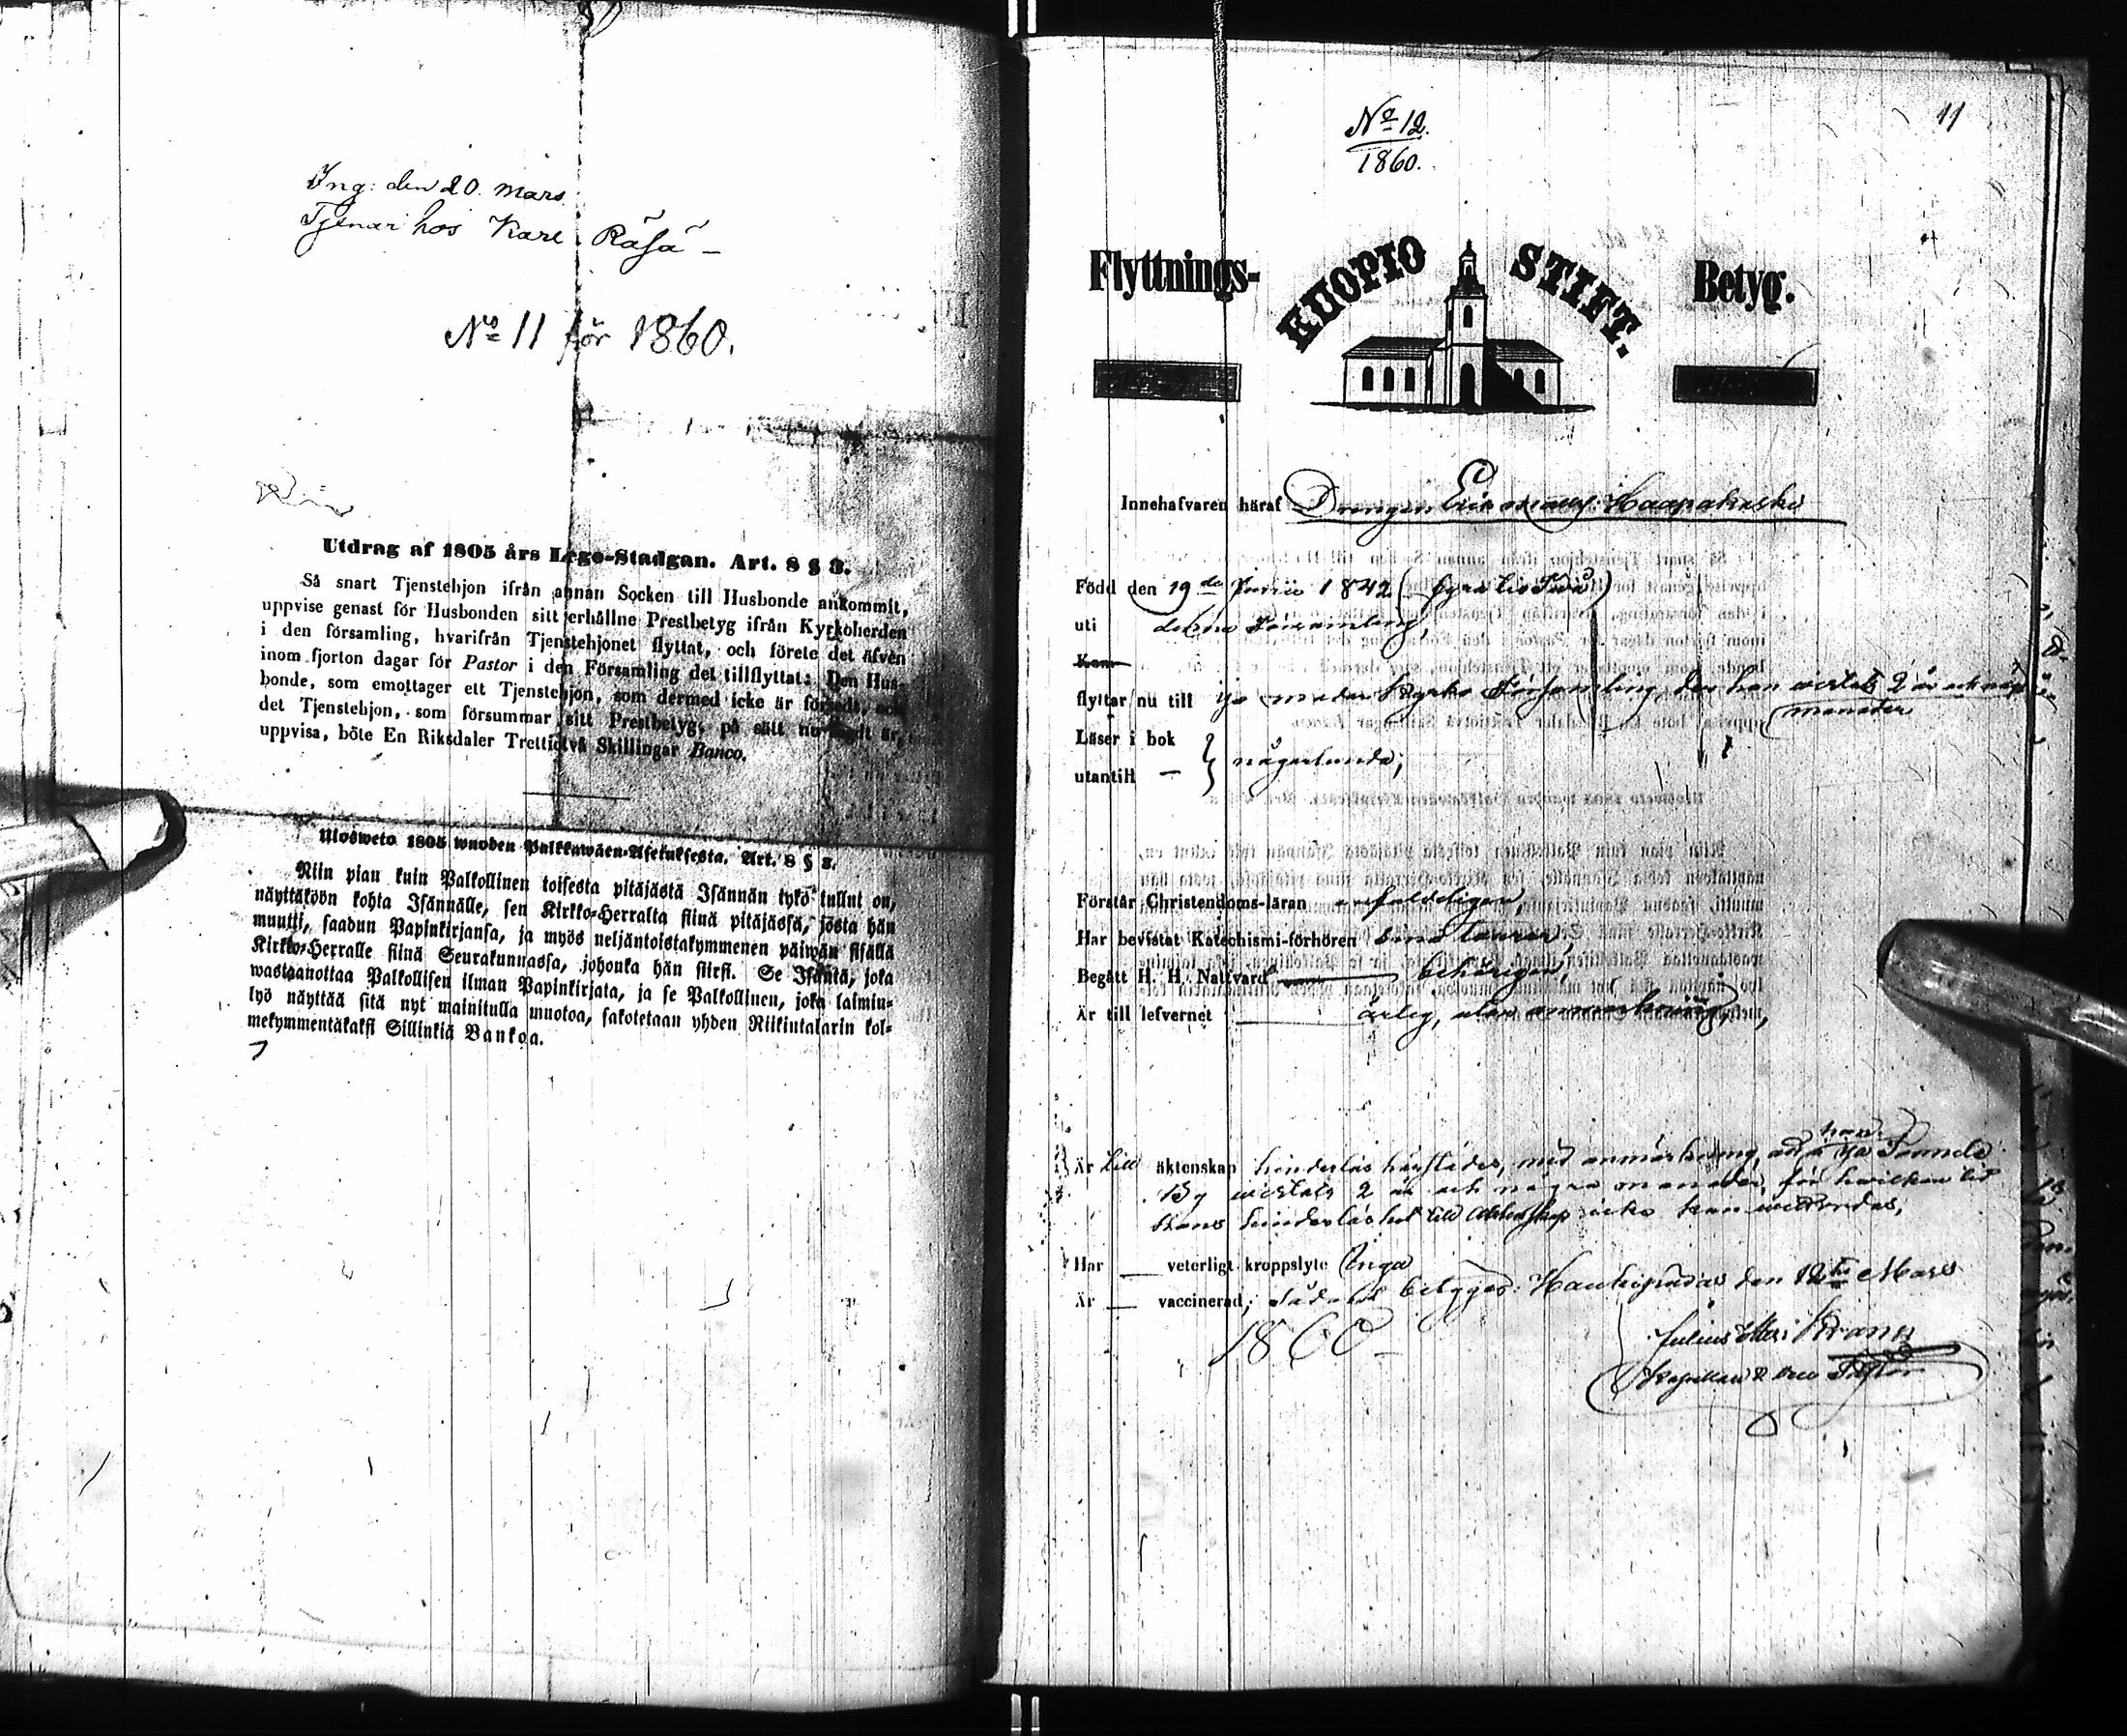 Ing: den 20. Mars.
Tjenar hos Karl Räsä –
No 11 för 1860.
Utdrag af 1805 års Lego-Stadgan. Art. 8 § 3.
Så snart Tjenstehjon ifrån annan Socken till Husbonde ankommit,
uppvise genast för Husbonden sitt erhållne Prestbetyg ifrån Kyrkoherden
i den församling, hvarifrån Tjenstehjonet flyttat, och förete det äfven
inom fjorton dagar för Pastor i den Församling det tillflyttat: Den Hus-
bonde, som emottager ett Tjenstehjon, som dermed icke är försedt, och
det Tjenstehjon, som försummar sitt Prestbetyg, på sätt nu sagdt är,
uppvisa, böte En Riksdaler Trettiotvå Skillingar Banco.
Ulosweto 1805 wuoden Palkkawäen-Asetuksesta. Art. 8 § 3.
Niin pian kuin Palkollinen toisesta pitäjästä Isännän tykö tullut on,
näyttäköön kohta Isännälle, sen Kirkko-Herralta siinä pitäjässä, josta hän
muutti, saadun Papinkirjansa, ja myös neljäntoistakymmenen päiwän sisällä
Kirkko-Herralle siinä Seurakunnassa, johonka hän siirsi. Se Isäntä, joka
wastaanottaa Palkollisen ilman Papinkirjata, ja se Palkollinen, joka laimin-
lyö näyttää sitä nyt mainitulla muotoa, sakotetaan yhden Riikintalarin kol-
mekymmentäkaksi Sillinkiä Bankoa.
11
No 12.
1860.
Flyttnings- KUOPIO STIFT. Betyg.
Innehafvaren häraf Drengen Eric Haapakoski
Född den 19de Junii 1842 (fyratiotvå)
uti denna Församling,
flyttar nu till Ijo moder Kyrko Församling, der han vistats 2 år och någ
månader
Läser i bok
utantill – någorlunda,
Förstår Christendoms-läran enfaldigen,
Har bevistat Katechismi-förhören
Begått H. H. Nattvard behörigen,
Är till lefvernet ärlig, utan anmärkning,
han
Är till äktenskap hinderlös härstädes, med anmärkning, att i Ijo
By vistats 2 år och några månader, för hvilken tid
hans hinderlöshet till Äktenskap icke kan
Har veterligt kroppslyte Inga
Är vaccinerad, betygas: Haukipudas den 12te Mars
1860
Julius Krank